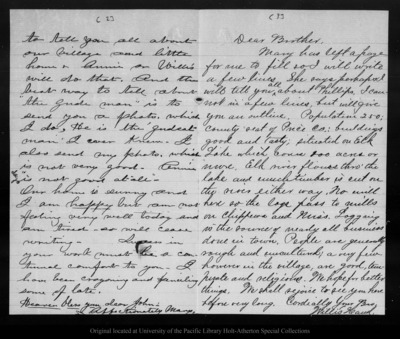 to tell you all about
our village and little
home & Annie or Willis
will do that. And the
best way to tell about
"the gude man" is to
send you a photo. which
I do, He is the gudest
man I ever knew. I
also send my photo. which
is not very good Annie
is not good at all.
Our home is sunny and
I am happy but am not
feeling very well today and
am tired so will cease
writing - in
your work must be a con
tinual comfort to you - I
have been crayoning and painting
some of late.
Heaven bless you dear John -
Affectionately Mary.
Dear Brother,
Mary has left a page
for me to fill so I will write
a few lines, She says perhaps I
will tell you all about Phillips, I can
not in a few lines, but will give
you an outline. Population 250,
county seat of Price Co; buildings
good and tasty, situated on Elk
Lake which covers 200 acres or
more. Elk river flows through the
lake and much lumber is cut on
the river either way. No mill
here so the logs pass to mills
on Chippewa and Miss. Logging
is the source of nearly all business
done in town. People are generally
rough and uncultured, a very few
however in the village, are good, tem
perate and religious. We hope for better
things. We shall rejoice to see you here
before very long. Cordially your Bro,
Willis Hand.
Original located at University of the Pacific Library Holt-Atherton Special Collections